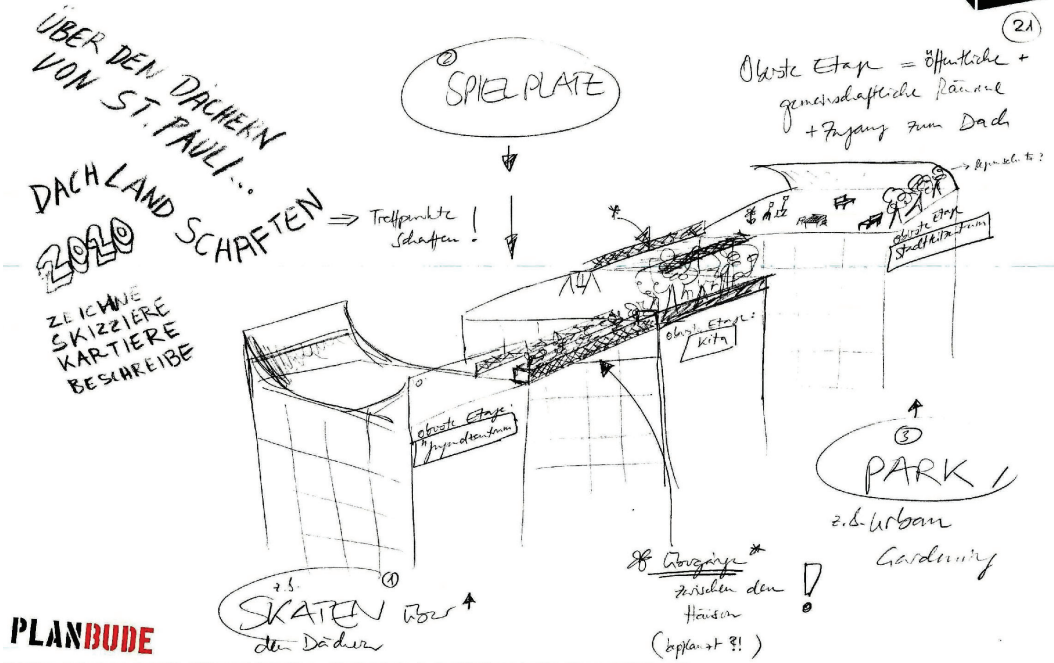 ÜBER DEN DÄCHERN
VON ST. PAULI...
DACHLANDSCHAFTEN
2020
ZEICHNE
SKIZZIERE
KARTIERE
BESCHREIBE
② SPIELPLATZ
21
Oberste Etage = öffentliche +
gemeinschaftliche Räume
+ Zugang zum Dach
⇒ Treffpunkte
schaffen!
oberste Etage
Stadtteilzentrum
oberste Etage:
Kita
oberste Etage
Jugendzentrum
③
PARK
z.B. Urban
Gardening
* Übergänge *
zwischen den
Häusern
(bepflanzt ?!)
!
z.B. ①
SKATEN über
den Dächern
PLANBUDE